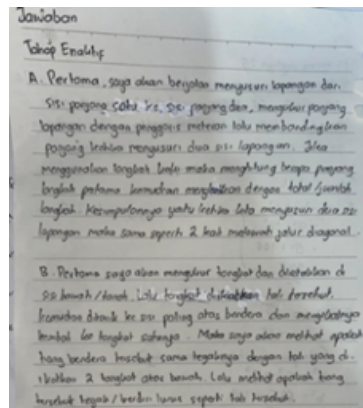 Jawaban
Tahap Enaktif
A. Pertama, saya akan berjalan menyusuri lapangan dari
sisi panjang satu ke sisi panjang dua, mengukur panjang
lapangan dengan penggaris meteran lalu membandingkan
panjang ketika menyusuri dua sisi lapangan. Jika
menggunakan tongkat maka menghitung berapa panjang
tongkat pertama kemudian mengkalikan dengan total/jumlah
tongkat. Kesimpulannya yaitu ketika kita menyusuri dua sisi
lapangan maka sama seperti 2 kali melewati jalur diagonal.
B. Pertama saya akan mengukur tongkat dan diletakkan di
sisi bawah/tanah. Lalu tongkat diikatkan tali tersebut.
Kemudian ditarik ke sisi paling atas bendera dan mengikatnya
kembali ke tongkat satunya. Maka saya akan melihat apakah
tiang bendera tersebut sama tegaknya dengan tali yang di
ikatkan 2 tongkat atas bawah. Lalu melihat apakah tiang
tersebut tegak/berdiri lurus seperti tali tersebut.